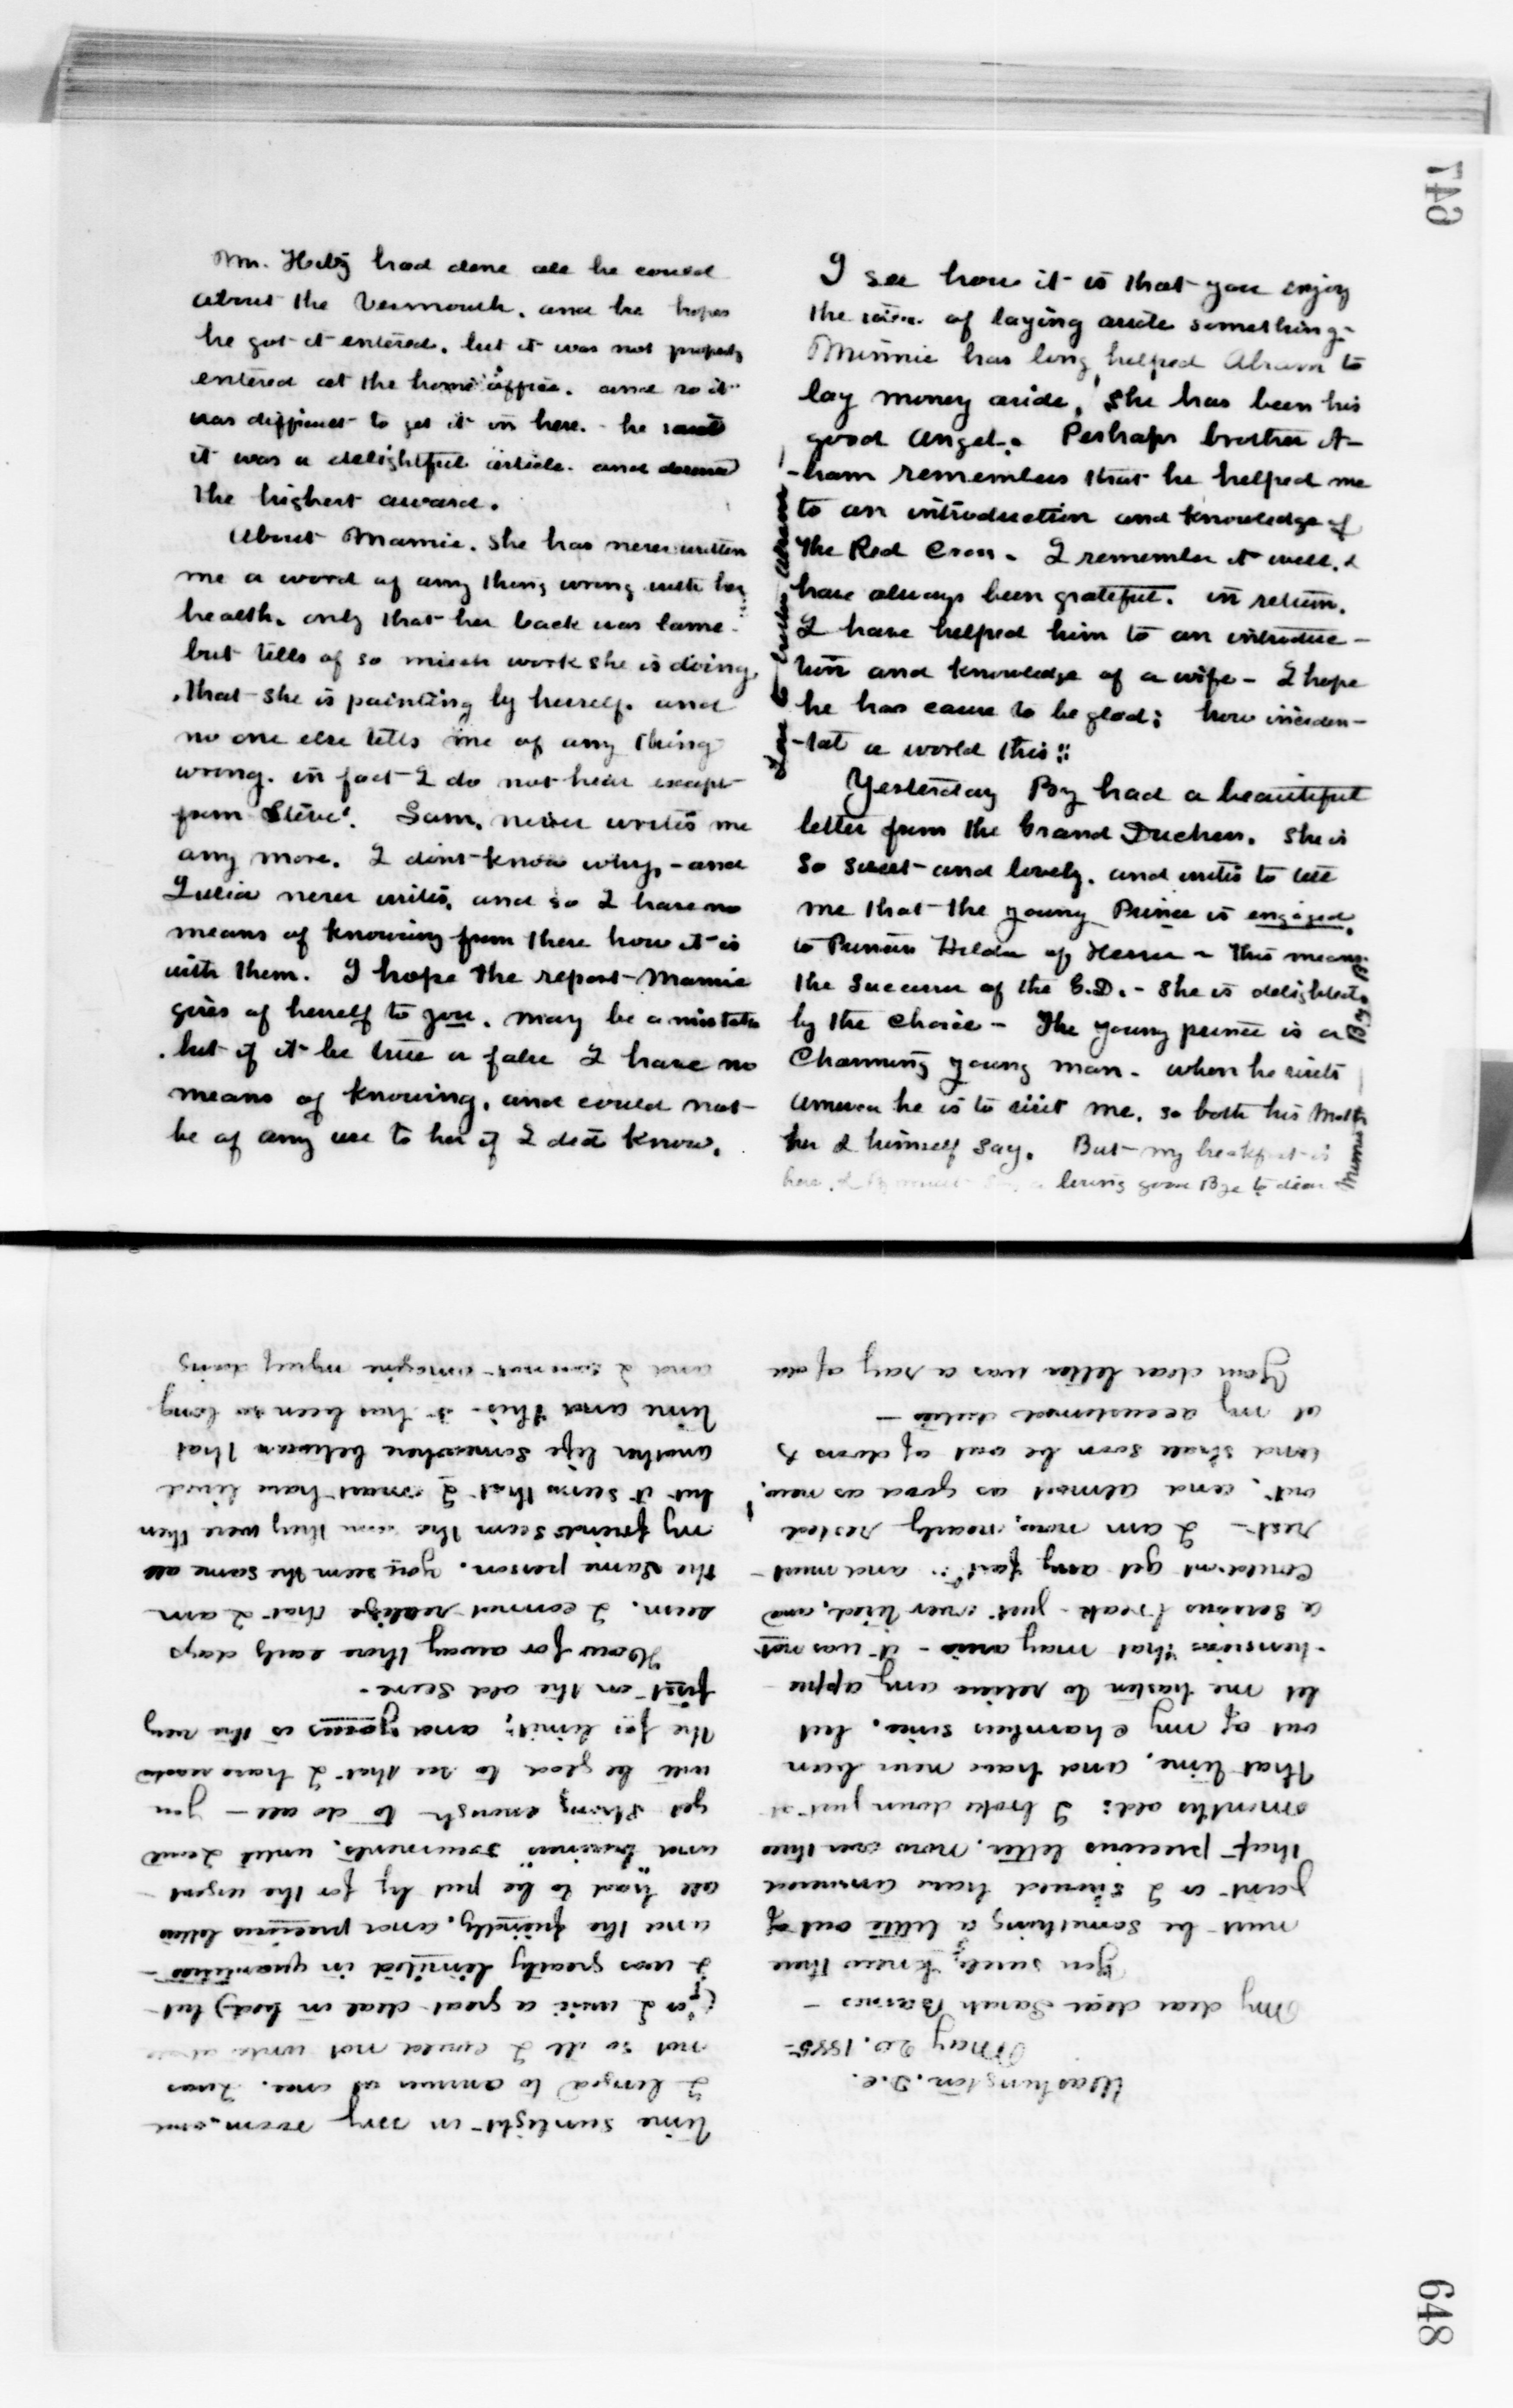 649
Mr. Hitz had done all he could
about the Vermouth, and he hopes
he got it entered, but it was not properly
entered at the home office, and so it
was difficult to get it in here. - he said
it was a delightful article and deserved
the highest award.
About Mamie. She has never written
me a word of any thing wrong with her
health, only that her back was lame -
but tells of so much work she is doing,
that she is painting by herself. and
no one else tells me of any thing
wrong. in fact I do not hear except
from Steve. Sam, never writes me
any more. I dont know why, - and
Julia never writes, and so I have no
means of knowing from there how it is
with them. I hope the report Mamie
gives of herself to you, may be a mistake
but if it be true or false I have no
means of knowing, and could not
be of any use to her if I did know.
I see how it is that you enjoy
the idea of laying aside something -
Minnie has long helped Abram to
lay money aside, she has been his
good angel. Perhaps brother A-
-bram remembers that he helped me
to an introduction and knowledge of
the Red Cross - I remember it well, &
have always been grateful. in return,
I have helped him to an introduc-
tion and knowledge of a wife - I hope
he has cause to be glad: how inciden-
-tal a world this!!
Yesterday By had a beautiful
letter from the Grand Duchess. She is
so sweet and lovely, and writes to tell
me that the young Prince is engaged
to Princess Hilda of Nassau - This means
the Successor of the G.D. - She is delighted
by the choice - The young prince is a
Charming young man - when he visits
America he is to visit me, so both his Mother
her & himself say. But my breakfast is
here, & By must a loving good Bye to dear
Minnie
By
Love to brother Abram
Washington. D.C.
May 20. 1885-
My dear dear Sarah Barnes -
You surely knew there
must be something a little out of
joint or I should have answered
that precious letter, now over three
months old: I broke down just at
that time, and have never been
out of my chamber since, but
let me hasten to relieve any appre
-hension that may arise - it was not
a serious break - just over tired, and
couldnt get any farther: and must
rest - I am now, nearly rested
out, and almost as good as new,
and shall soon be out of doors &
at my accustomed duties -
Your dear letter was a ray of old
time sunlight in my room, and
I longed to answer at once. I was
not so ill I could not write above
(for I write a great deal in bed) but
I was greatly limited in quantities -
and the friendly, and precious letters
all had to be put by for the urgent
and "business" documents, until I could
get strong enough to do all - you
will be glad to see that I have reached
the far limit; and yours is the very
first on the old score -
How far away those early days
seem. I cannot realize that I am
the same person. You seem the same all
my friends seem the same they were then
but it seems that I must have lived
another life somewhere between that
time and this - it has been so long
and I cannot imagine myself doing
648